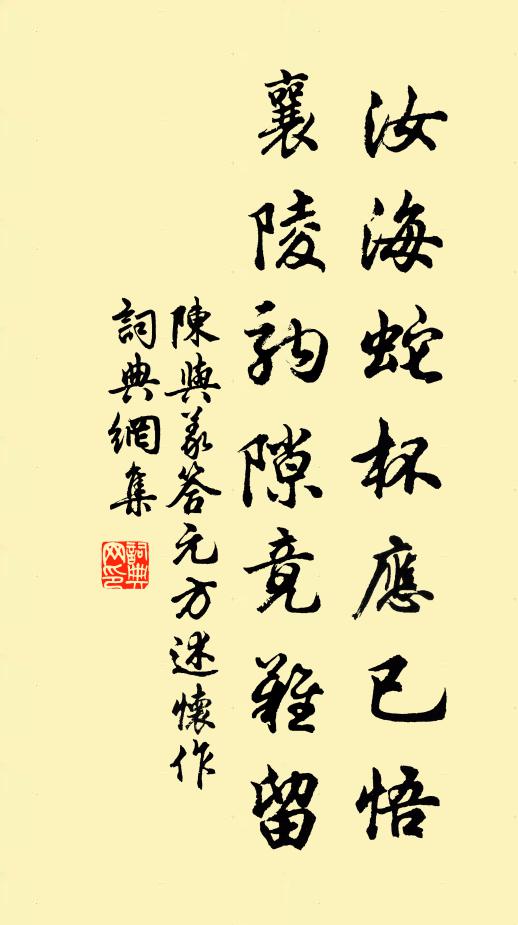 汝海蛇杯應已悟
襄陵駒隙竟難留
陳與義答元方述懷作
詞典網集
詞典网印